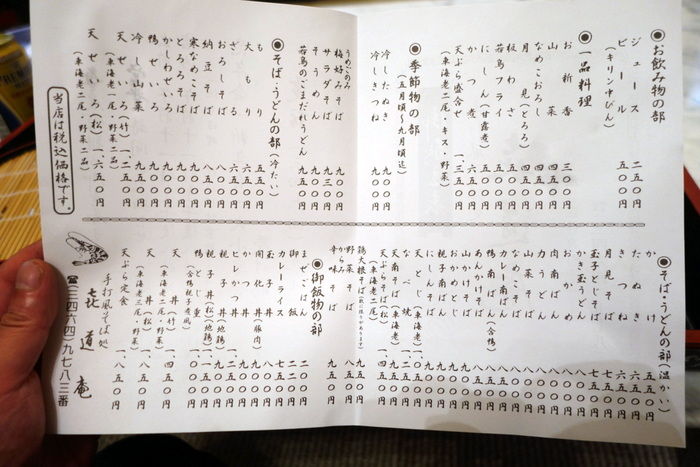 ◉お飲み物の部
ジュース 二五〇円
ビール 五〇〇円
(キリン中びん)
◉一品料理
お新香 三〇〇円
山菜 四五〇円
なめこおろし 四五〇円
月見(とろろ) 四五〇円
板わさ 五〇〇円
若鳥フライ 五〇〇円
にしん(甘露煮) 六〇〇円
かつ煮 六五〇円
天ぷら盛合せ 一、三五〇円
(車海老二尾・キス・野菜)
◉季節物の部
(五月頃〜九月頃迄)
冷したぬき 九〇〇円
冷しきつね 九〇〇円
うめこのみ
梅好みそば 九〇〇円
サラダそば 九三〇円
そうめん 九〇〇円
若鳥のごまだれうどん 九五〇円
◉そば・うどんの部(冷たい)
もり 五五〇円
大もり 六五〇円
ざる 六五〇円
おろしそば 八〇〇円
納豆そば 八〇〇円
寒なめこそば 九〇〇円
とろろそば 九〇〇円
かしわせいろ 九〇〇円
鴨せいろ 九五〇円
冷し山菜 九五〇円
天せいろ(竹) 一、二五〇円
(車海老一尾・野菜二品)
天せいろ(松) 一、六五〇円
(車海老二尾・野菜二品)
当店は税込価格です。
◉そば・うどんの部(温かい)
かけ 五五〇円
たぬき 六五〇円
きつね 六五〇円
月見そば 七五〇円
玉子とじそば 七五〇円
かき玉うどん 八〇〇円
おかめ 八〇〇円
力うどん 八〇〇円
肉南ばん 八〇〇円
山菜そば 八〇〇円
なめこそば
カレー南ばん
鴨南ばん
(合鴨)
あんかけ
山かけ
おかめとじ
にしんそば
親子南ばん
天とじ(車海老)
なべ焼
天南そば
天ぷらそば(松)
(車海老二尾)
鶏大根そば
野菜そば
から味そば
◉御飯物の部
まぜごはん 二〇〇円
御飯 二〇〇円
カレーライス
玉子丼 七五〇円
開化丼(豚肉)
かつ丼
ヒレかつ丼
親子丼(地鶏)
親子丼(松)(地鶏)
鴨とじ重
(合鴨親子煮風)
天丼(竹) 一、〇五〇円
(車海老二尾・野菜)
天丼(松) 一、八五〇円
(車海老三尾・野菜)
天ぷら定食 一、八五〇円
手打風そば処
㐂道庵
☎(三四六四)九七八三番